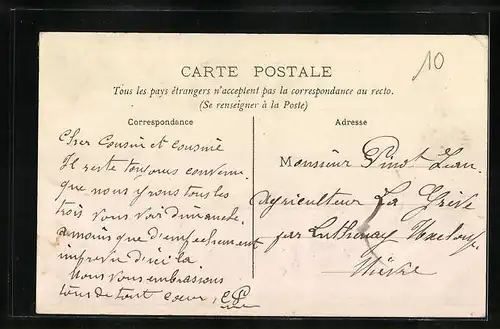 10
CARTE POSTALE
Tous les pays étrangers n'acceptent pas la correspondance au recto.
(Se renseigner à la Poste)
Correspondance
Adresse
Cher Cousin et cousine
Il reste toujours convenu
que nous yrons tous les
trois vous voir dimanche
amoins que d'empechement
imprevu d'ici la
Nous vous embrassons
tous de tout coeur
Monsieur Pinot Jean
Agriculteur La Grive
par Luthenay Uxeloup
Nièvre